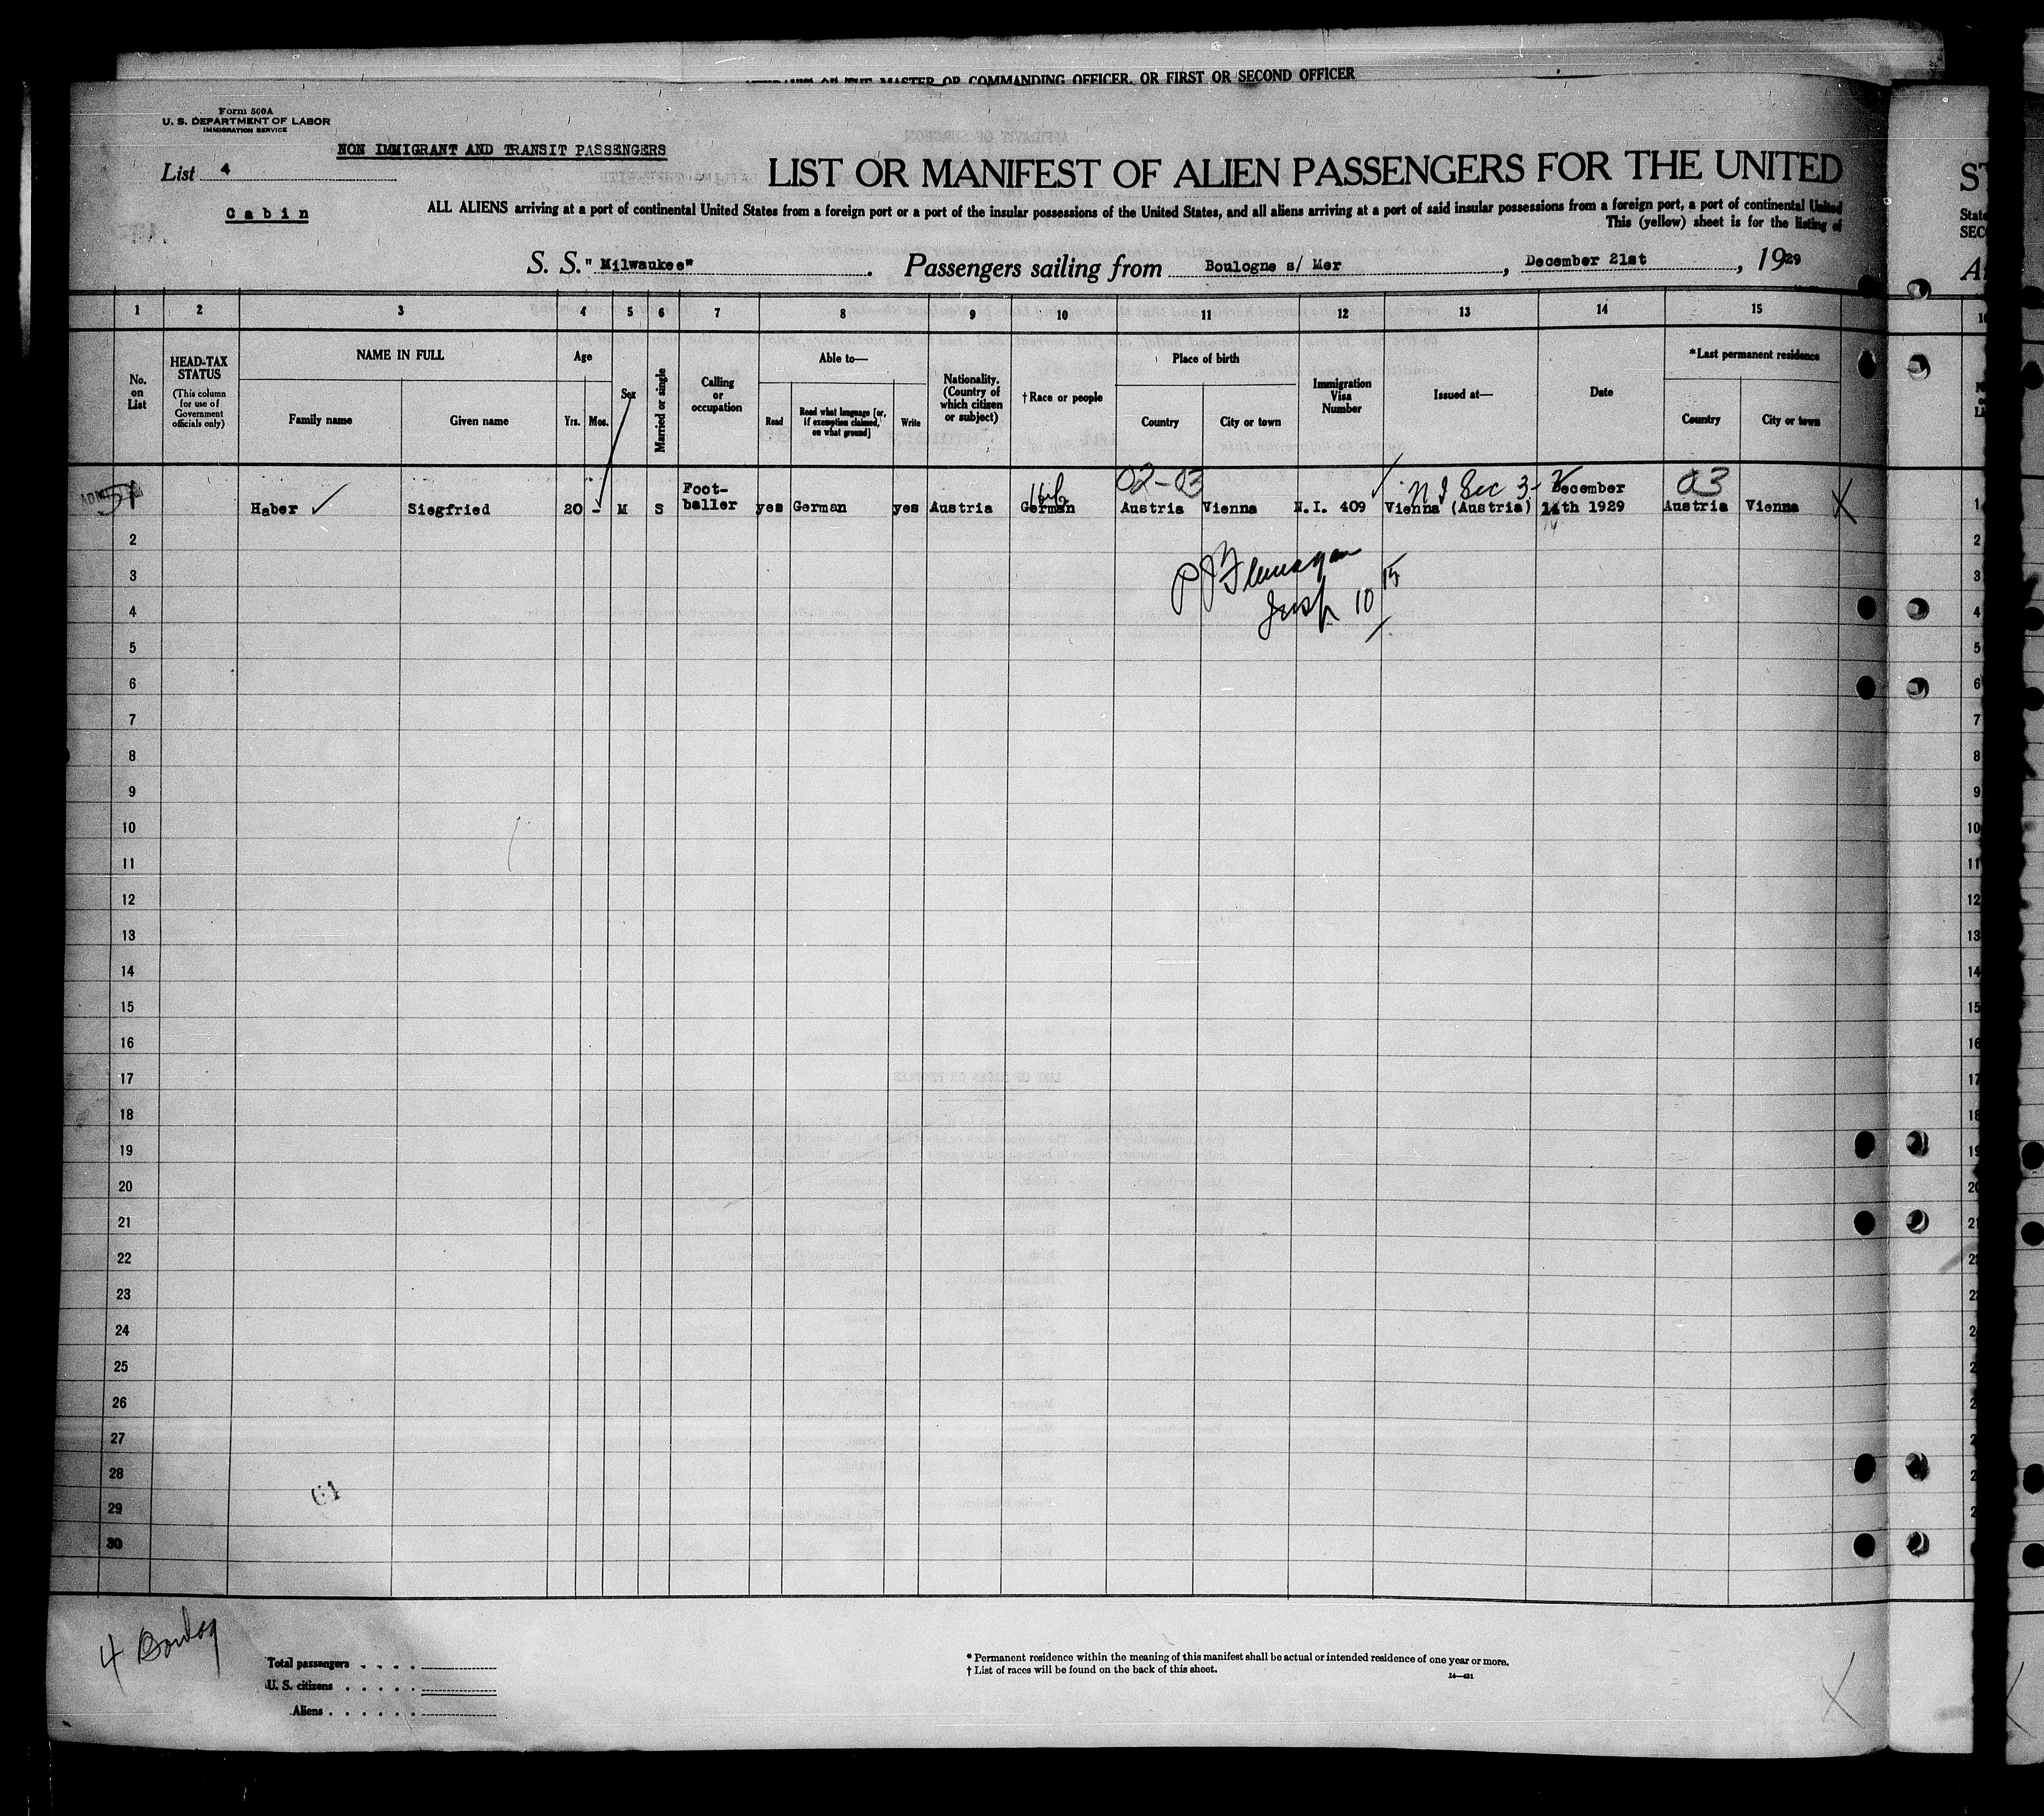 AFFIDAVIT OF THE MASTER OR COMMANDING OFFICER, OR FIRST OR SECOND OFFICER
Form 500A
U. S. DEPARTMENT OF LABOR
IMMIGRATION SERVICE
NON IMMIGRANT AND TRANSIT PASSENGERS
List 4
LIST OR MANIFEST OF ALIEN PASSENGERS FOR THE UNITED
Cabin
ALL ALIENS arriving at a port of continental United States from a foreign port or a port of the insular possessions of the United States, and all aliens arriving at a port of said insular possessions from a foreign port, a port of continental United
This (yellow) sheet is for the listing of
S. S. "Milwaukee". Passengers sailing from Boulogne s/ Mer, December 21st, 1929
1 2 3 4 5 6 7 8 9 10 11 12 13 14 15
No. on List
HEAD-TAX STATUS
(This column for use of Government officials only)
NAME IN FULL
Family name Given name
Age
Yrs. Mos.
Sex
Married or single
Calling or occupation
Able to—
Read Read what language [or, if exemption claimed, on what ground] Write
Nationality. (Country of which citizen or subject)
†Race or people
Place of birth
Country City or town
Immigration Visa Number
Issued at—
Date
*Last permanent residence
Country City or town
51 02-03 N I Sec 3-2 03
Haber Siegfried 20 - M S Foot-baller yes German yes Austria German Austria Vienna N.I. 409 Vienna (Austria) December 14th 1929 Austria Vienna 1
2
3
4
5
6
7
8
9
10
11
12
13
14
15
16
17
18
19
20
21
22
23
24
25
26
27
28
29
30
P J Flanagan
Insp 10 15
61
4
Total passengers
U. S. citizens
Aliens
* Permanent residence within the meaning of this manifest shall be actual or intended residence of one year or more.
† List of races will be found on the back of this sheet.
14—431